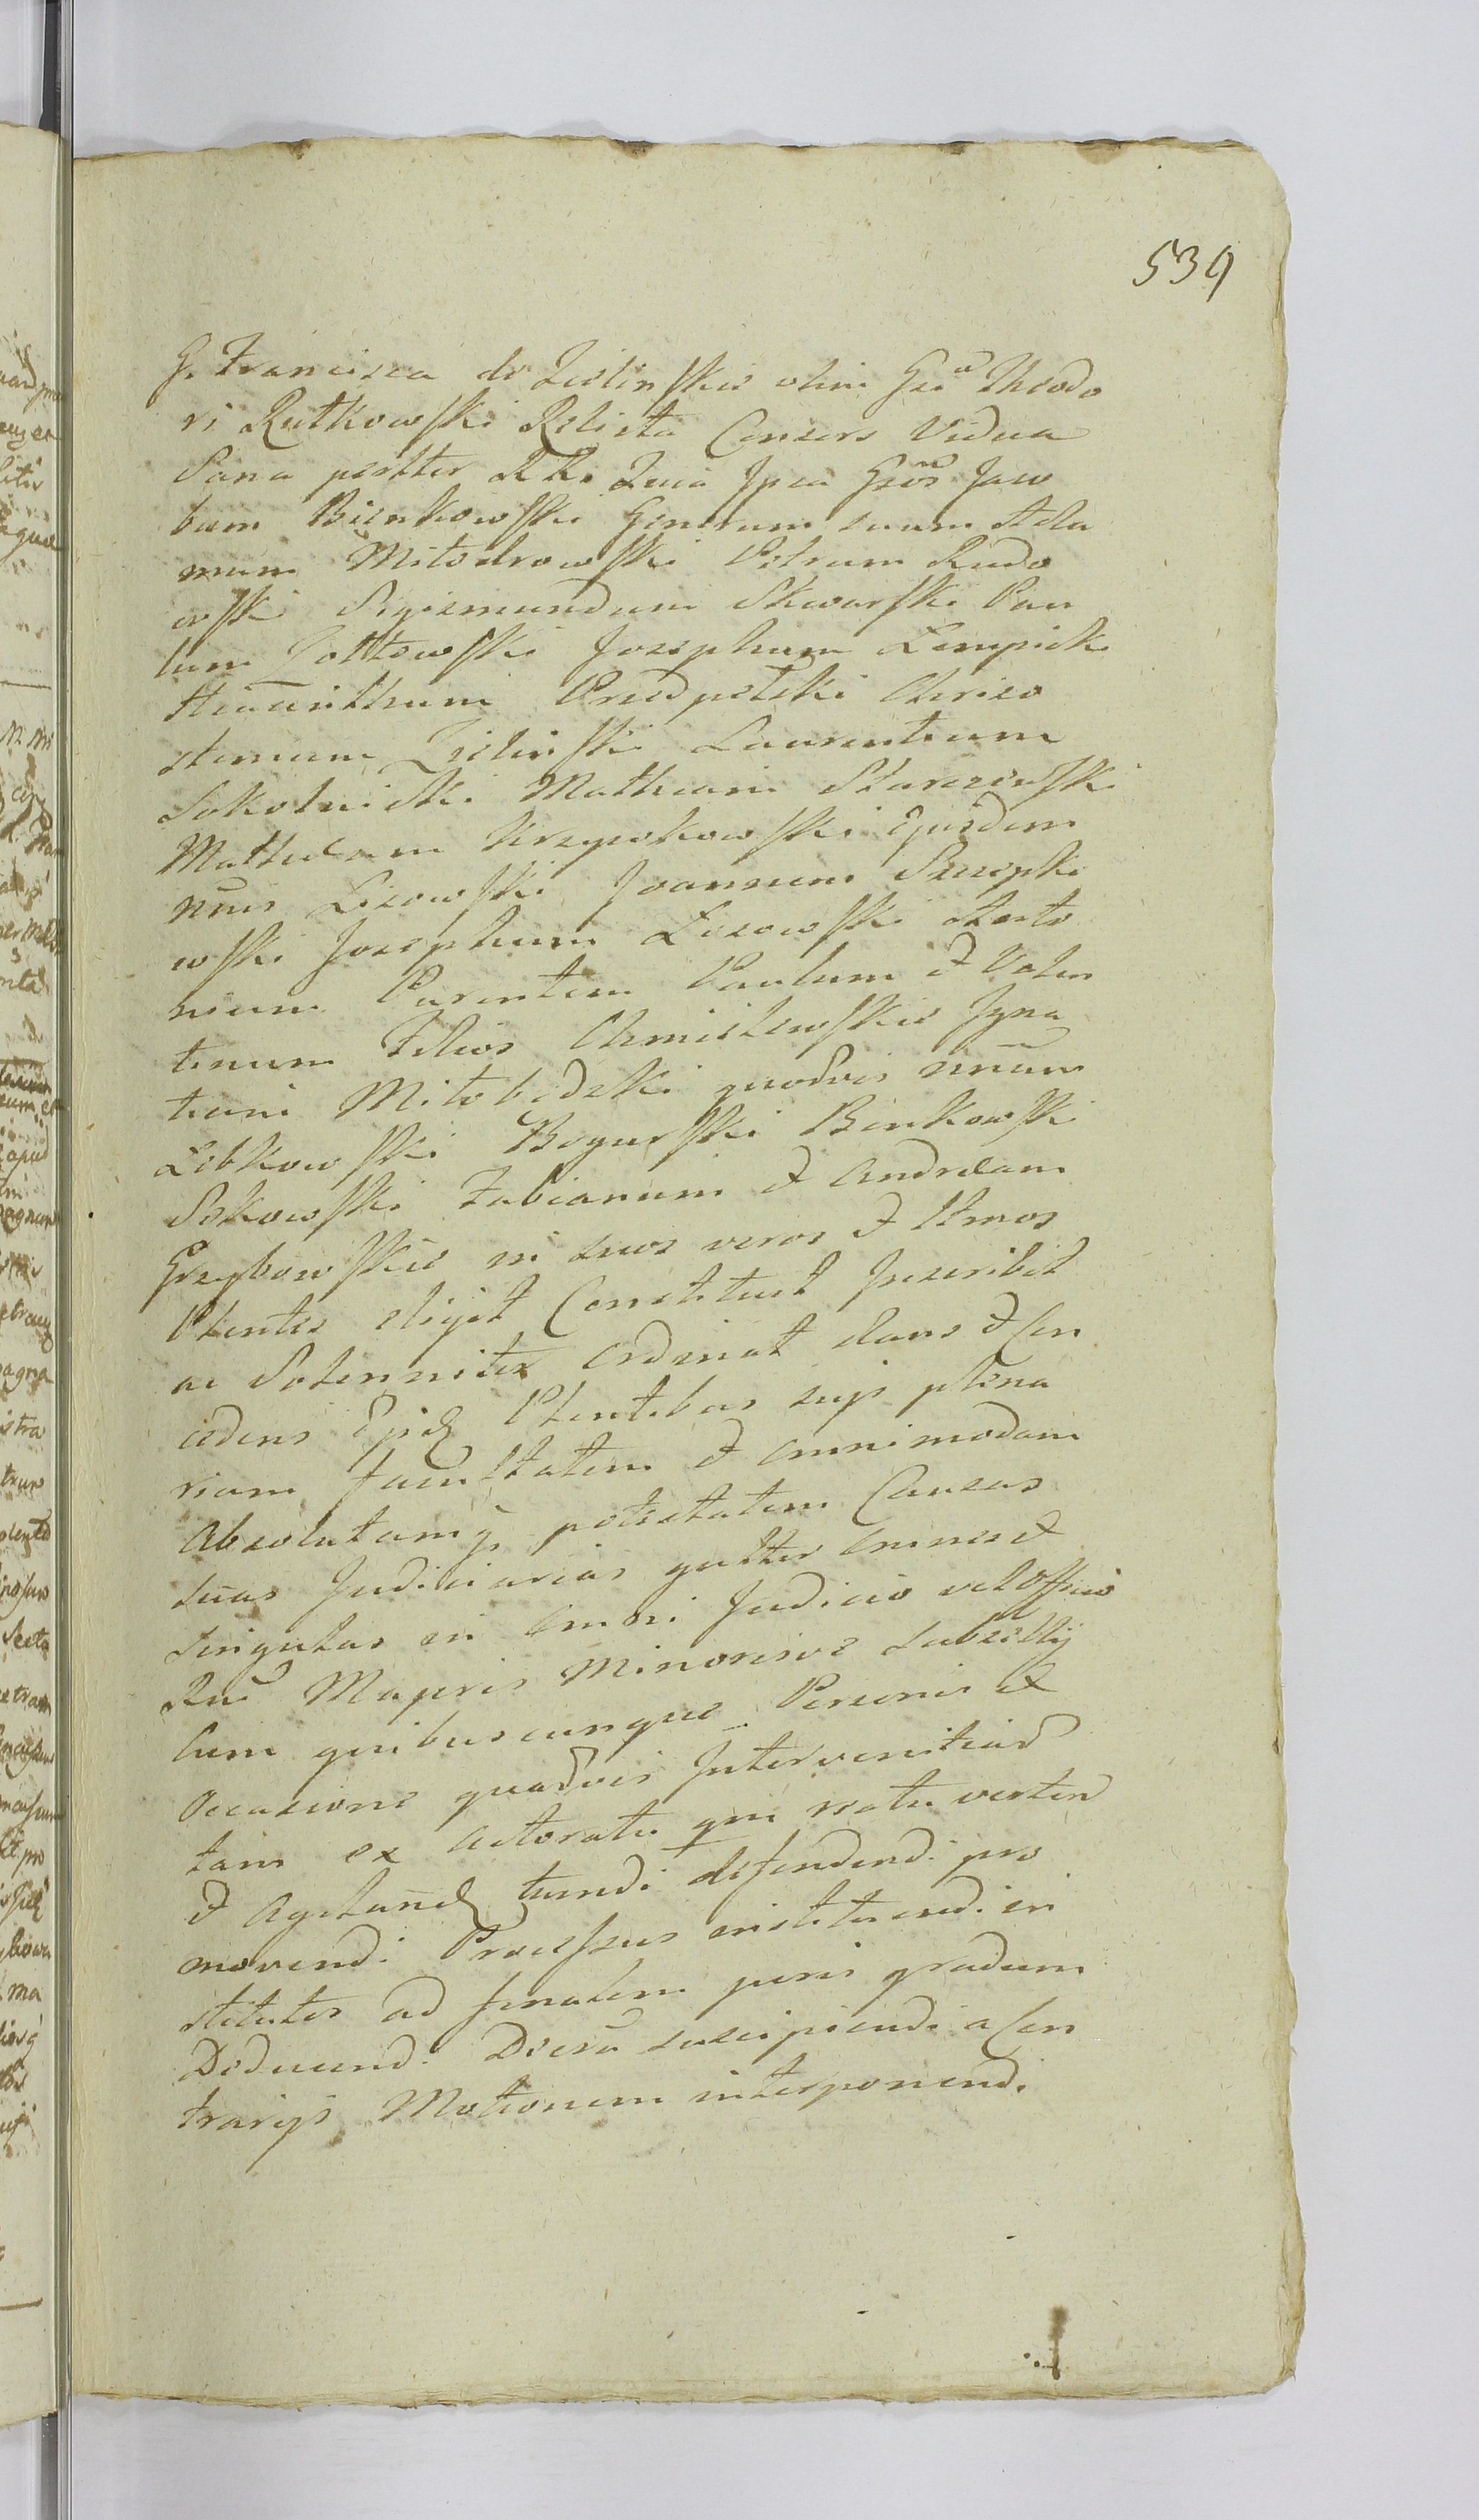 539
G. Francisca de Zielinskie olim Gsi Theodo
ri Rutkowski Relicta Consors Vidua
Sana perltter RR. Quia Ipsa Gsos Jaco
bum Bienkowski Generum suum Ada
mum Mitodrowski Petrum Rudo
wski Sigismundum Skwarski Pau
lum Zołtowski Josephum Lempicki
Hiacinthum Przedpełski Chriso
stomum Zielinski Laurentium
Sokolnicki Mathiam Starczewski
Matheum Krzywkowski Ejusdem
nñis Lisowski Joannem Szczepko
wski Josephum Lisowski Anto
nium Parentem Paulum et Valen
tinum Filios Chmielewskie Igna
tium Miłobędzki quodvis nñum
Lebkowski Bogurski Binkowski
Sękowski Fabianum et Andream
Grzybowskie in suos veros et lttmos
Plentes eligit Constituit Inscribit
ac Solenniter Ordinat dans et Con
cedens Ejsd Plentibus suis plena
riam facultatem et omnimodam
Absolutamq potestatem Causas
suas Judiciarias gnltter omnes et
singulas in Omni Judicio vel Officio
Rni Majoris Minorisve Subsellij
Cum quibuscunque Personis et
Occasione quadvis Intervenitiād
tam ex Actoratu qm reatu verten
et Agitand tuendi defendendi pro
movendi Processus instituendi in
stitutos ad finalem juris gradum
Deducend. Decra suscipiendi a Con
trarijs Motionem interponendi